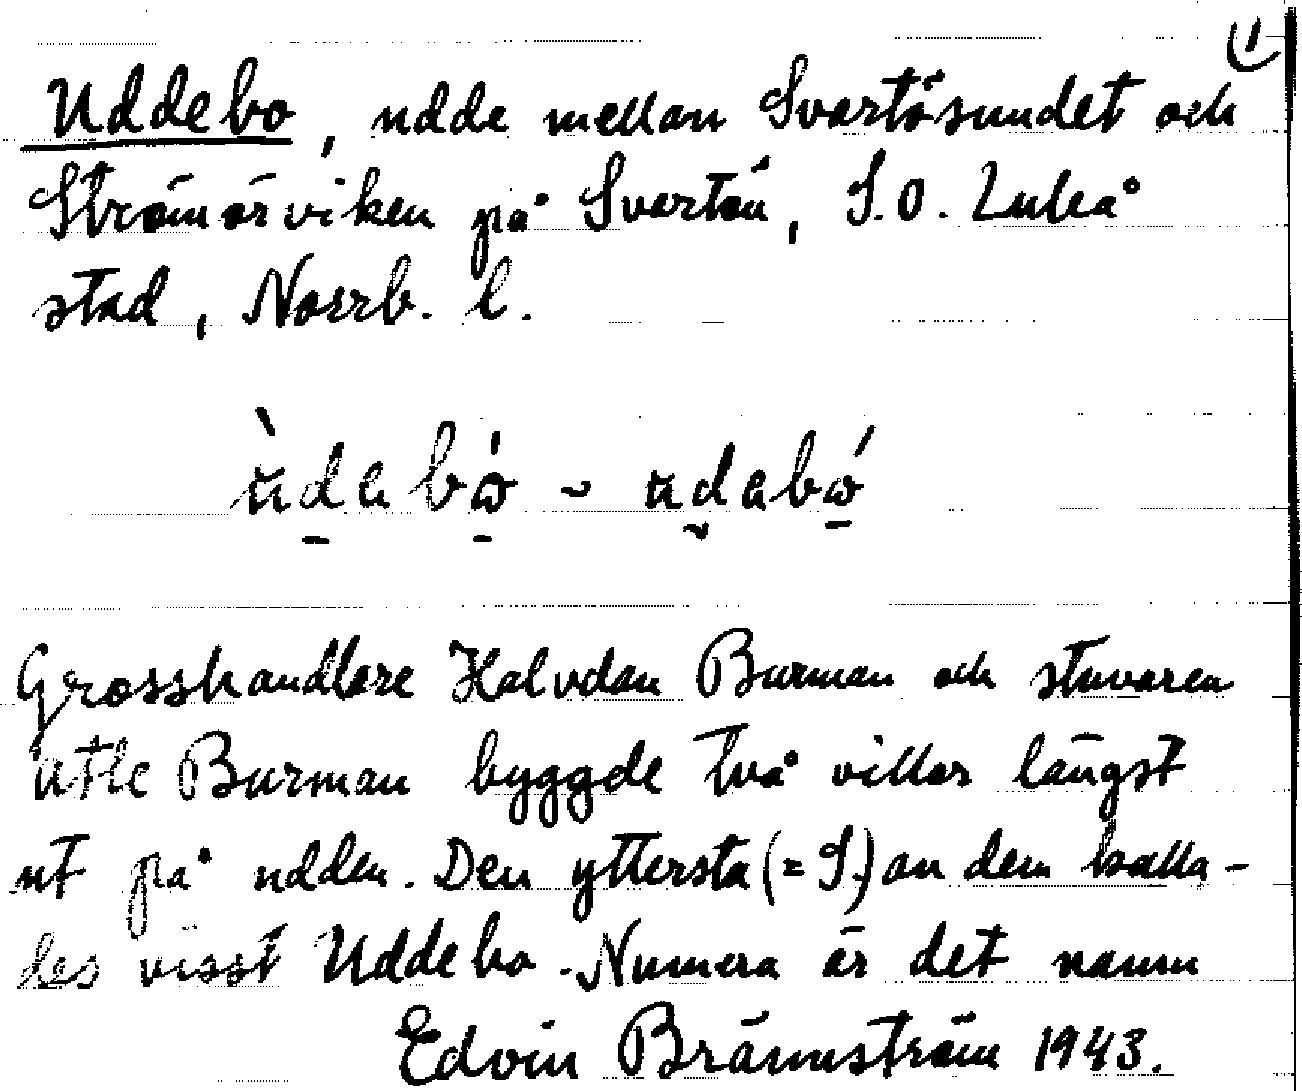 1)
Uddebo, udde mellan Svartösundet och
Strömörviken på Svartön, S.O. Luleå
stad, Norrb. l.
ùdabó ~ udabó
Grosshandlare Halvdan Burman och stuvaren
Atle Burman byggde två villor längst
ut på udden. Den yttersta (= S.) av dem kalla-
des visst Uddebo. Numera är det namn
Edvin Brännström 1943.